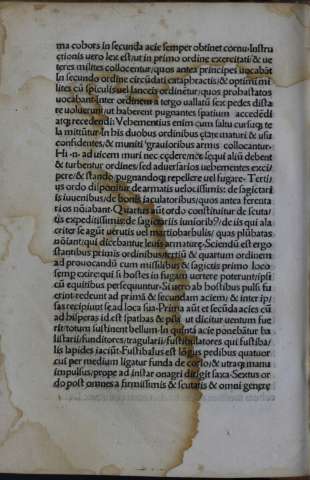 ma cohors in secunda acie semper obtinet cornu. Instru
ctionis uero lex est, ut in primo ordine exercitati & ue
teres milites collocentur, quos antea principes uocabãt
In secundo ordine circũdati cataphractis, & optimi mi
lites cũ spiculis uel lanceis ordinẽtur, quos prius hastatos
uocabant. Inter ordinem a tergo
uallatũ sex pedes dista
re uoluerunt, ut haberent pugnantes spatium accedẽdi
atq; recedendi. Vehementius enim cum saltu cursuq; te
la mittũtur. In his duobus ordinibus & ætate maturi & usu
confidentes, & muniti grauioribus armis collocantur.
Hi .n. ad uicem muri nec cędere, nec sequi aliũ debent
& turbent ordines, sed aduersarios uehementes exci
pere, & stando pugnandoq; repellere uel fugare. Terti
us ordo disponitur de armatis uelocissimis: de sagittari
is iuuenibus, de bonis iaculatoribus, quos antea ferenta
rios nõiabant. Quartus aũt ordo constituitur de scuta/
tis expeditissimis: de sagittariis iunioribꝰ, de iis qui ala
criter se agũt uerutis uel martiobarbulis, quas plũbatas
nõiant, qui dicebantur leuis armaturę. Sciendũ est ergo
stantibus primis ordinibus, tertiũ & quartum ordinem
ad prouocandũ cum missilibus & sagittis primo loco
semp exire qui si hostes in fugam uertere poterunt, ipsi
cũ equitibus persequuntur. Si uero ab hostibus pulsi fu
erint, redeunt ad primã & secundam aciem, & inter ip/
sas recipiunt se ad loca sua. Prima aũt et secũda acies cũ
ad hasperas id est spathas & pila ut dicitur uentum fue
rit, totum sustinent bellum. In quinta acie ponebãtur ba
listarii, funditores, tragularii, fustibulatores qui fustiba/
lis lapides iaciũt. Fustibalus est lõgus pedibus quatuor
cui per medium ligatur funda de corio, & utraq; manu
impulsus, prope ad instar onagri dirigit saxa. Sextus or
do post omnes a firmissimis & scutatis & omni genere